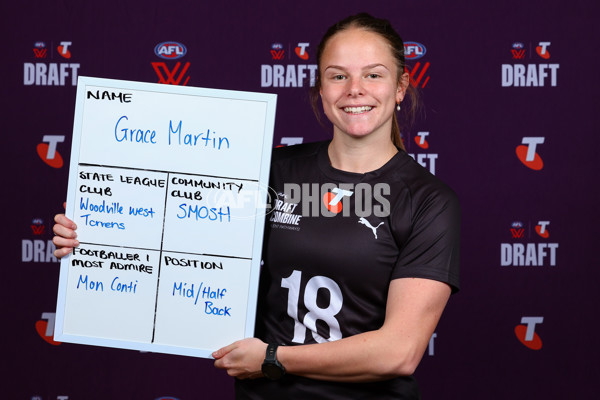 NAME
Grace Martin
STATE LEAGUE
CLUB
Woodville west
Torrens
COMMUNITY
CLUB
SMOSH
FOOTBALLER I
MOST ADMIRE
Mon Conti
POSITION
Mid/Half
Back
AFL PHOTOS
DRAFT
COMBINE
18
AFL
DRAFT
DRAFT
DRAFT
AFL
DRAFT
DRAFT
DRAFT